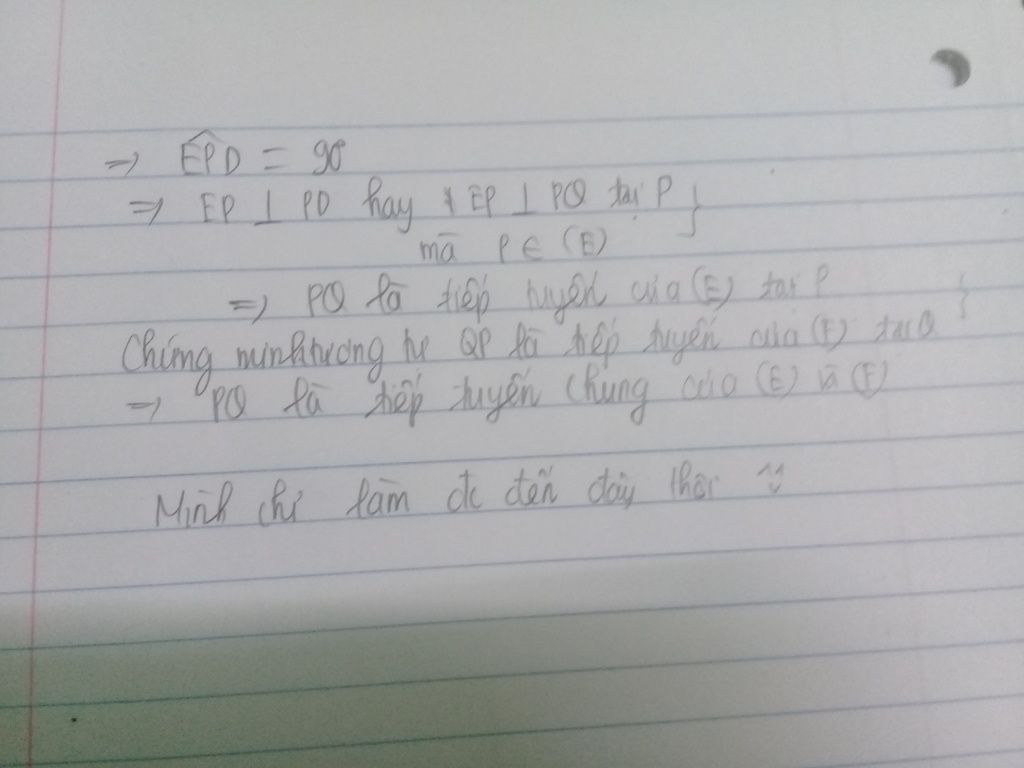 => EPD = 90°
=> EP ⊥ PD hay EP ⊥ PQ tại P }
mà P ∈ (E)
=> PQ là tiếp tuyến của (E) tại P }
Chứng minh tương tự QP là tiếp tuyến của (F) tại Q
=> PQ là tiếp tuyến chung của (E) và (F)
Mình chỉ làm đc đến đây thôi ^^